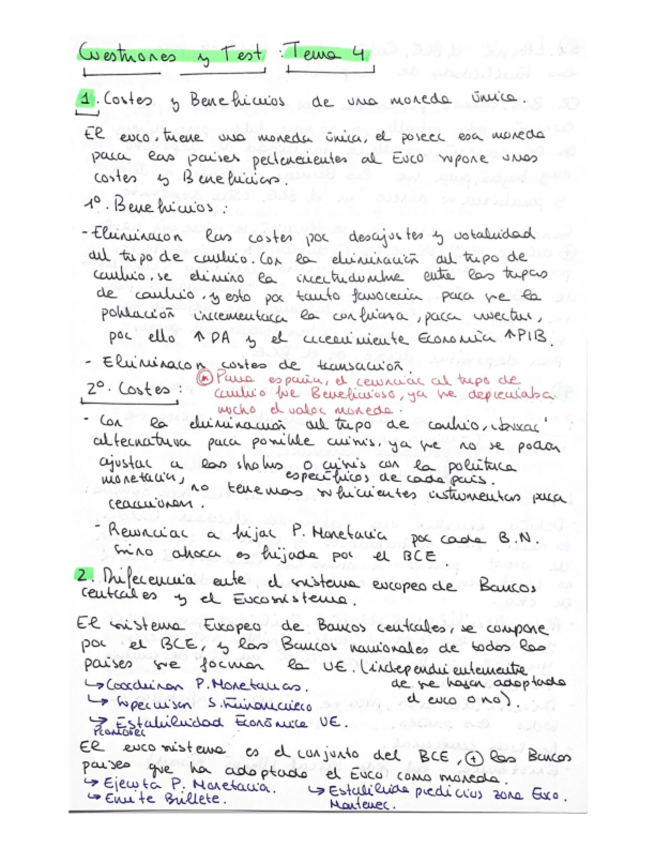 Cuestiones y Test : Tema 4
1. Costes y Beneficios de una moneda única.
El euro, tiene una moneda única, el poseer esa moneda
para los países pertenecientes al Euro supone unos
costes y Beneficios.
1º. Beneficios :
- Eliminacon los costes por desajustes y volatilidad
del tipo de cambio. Con la eliminación del tipo de
cambio, se elimino la incertidumbre entre los tipos
de cambio, y esto por tanto favorecia para que la
población incrementara la confianza, para invertir,
por ello ↑DA y el crecimiente Economía ↑PIB.
- Eliminacon costes de transacción.
* Para españa, el renunciar al tipo de
cambio fue Beneficioso, ya que depreciaba
mucho el valor moneda.
2º. Costes :
- Con la eliminación del tipo de cambio, buscar
alternativa para posible crisis, ya que no se podía
ajustar a los shocks o crisis con la política
monetaria, específicos de cada país.
no tenemos suficientes instrumentos para
reaccionar.
- Renunciar a fijar P. Monetaria por cada B.N.
sino ahora es fijada por el BCE
2. Diferencia ente el sistema europeo de Bancos
centrales y el Eurosistema.
El sistema Europeo de Bancos centrales, se compone
por el BCE, y los Bancos nacionales de todos los
países que forman la UE. (independientemente
de que hayan adoptado
el euro o no).
↳ Coordinan P. Monetarias.
↳ Supervisan S. Financiero
↳ Estabilidad Económica UE.
Promover
El eurosistema es el conjunto del BCE, + los Bancos
países que ha adoptado el Euro como moneda.
↳ Ejecuta P. Monetaria.
↳ Emite Billete.
↳ Estabilida predicios zona Euro.
Mantener.